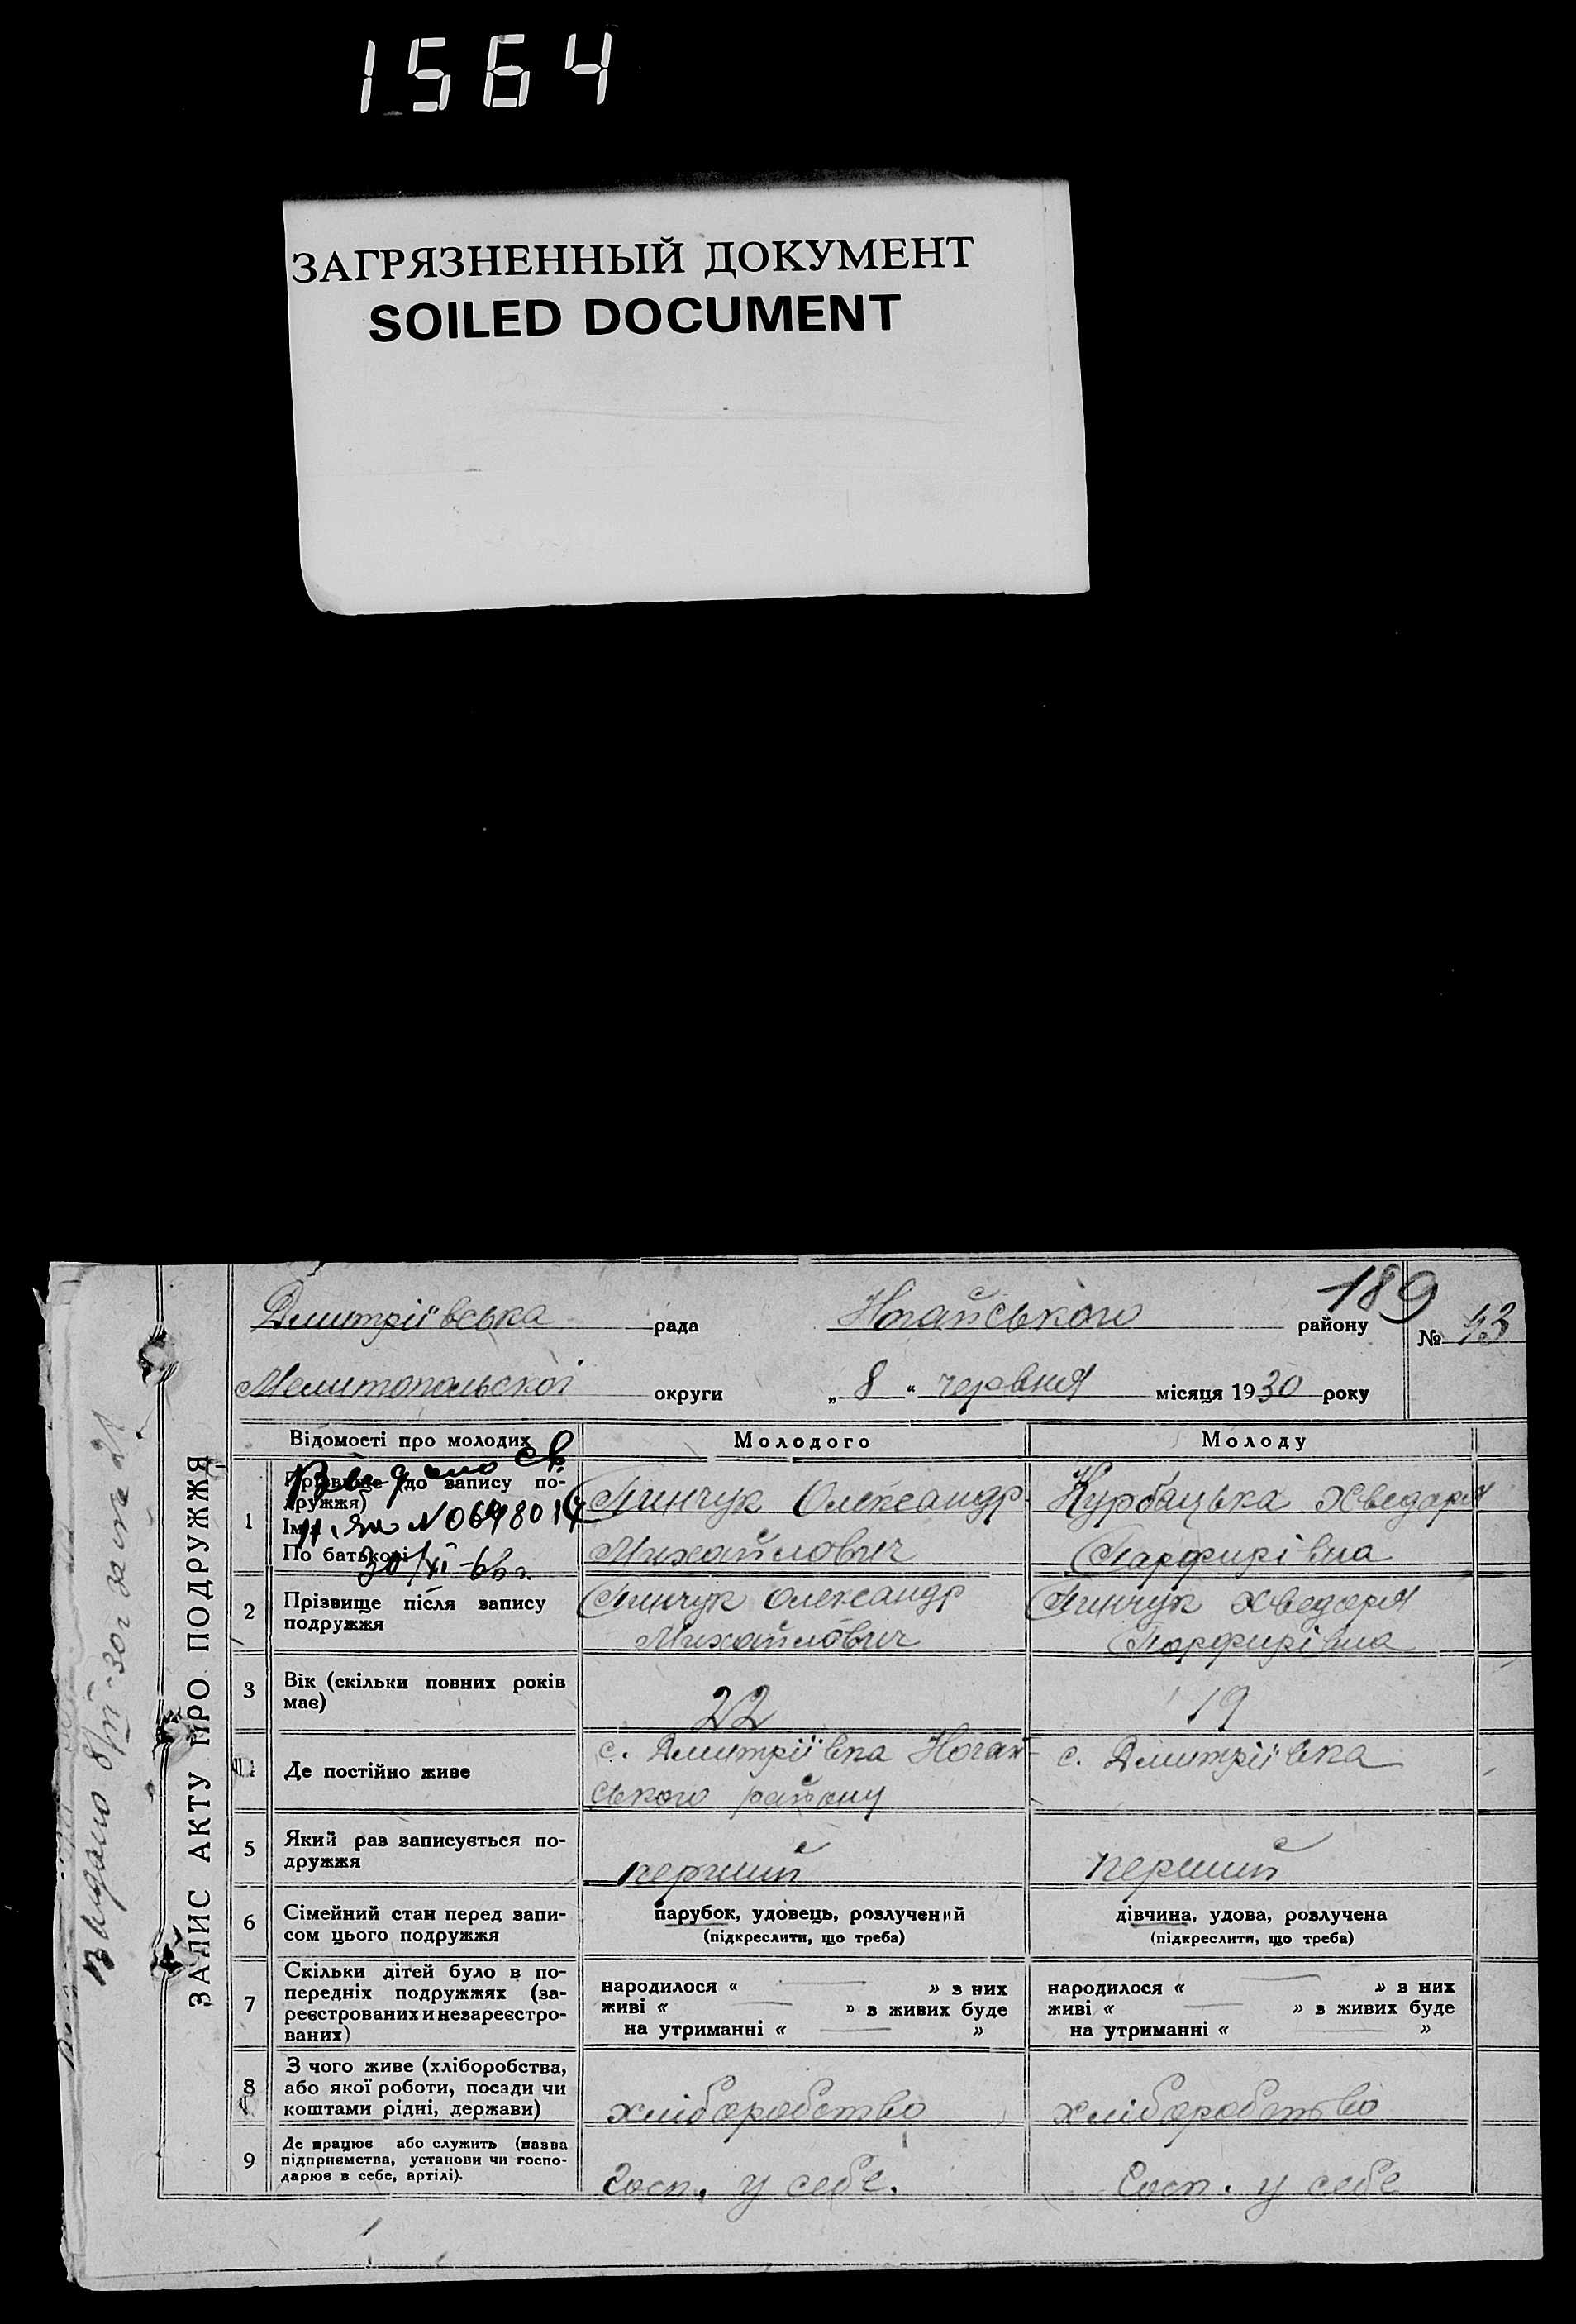 1564
ЗАГРЯЗНЕННЫЙ ДОКУМЕНТ
SOILED DOCUMENT
189
Дмитріївська рада Ногайського району № 43
Мелитопольскої округи „ 8 “ червня місяця 1930 року
ЗАПИС АКТУ ПРО ПОДРУЖЖЯ
Видано 8/VI-30г
Відомості про молодих Молодого Молоду
Видано св.
№ 069801
30/XI-66 г.
1 Прізвище (до запису подружжя)
Ім'я
По батькові
Пинчук Олександр
Михайлович
Курбацька Хведоря
Парфирівна
2 Прізвище після запису
подружжя
Пинчук Олександр
Михайлович
Пинчук Хведоря
Парфирівна
3 Вік (скільки повних років
має)
22 19
4 Де постійно живе
с. Дмитріївка Ногай-
ського району
с. Дмитріївка
5 Який раз записується по-
дружжя
перший перший
6 Сімейний стан перед запи-
сом цього подружжя
парубок, удовець, розлучений
(підкреслити, що треба)
дівчина, удова, розлучена
(підкреслити, що треба)
7 Скільки дітей було в по-
передніх подружжях (за-
реєстрованих и незареєстро-
ваних)
народилося « — » з них
живі « — » з живих буде
на утриманні « — »
народилося « — » з них
живі « — » з живих буде
на утриманні « — »
8 З чого живе (хліборобства,
або якої роботи, посади чи
коштами рідні, держави)
хліборобство хліборобство
9 Де працює або служить (назва
підприємства, установи чи госпо-
дарює в себе, артілі).
Госп. у себе. Госп. у себе